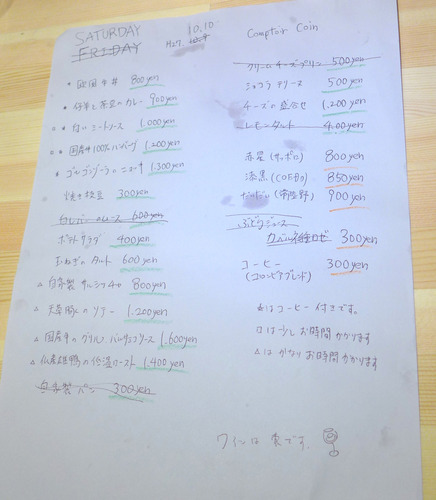 SATURDAY
FRIDAY
H27. 10.10
Comptoir Coin
* 欧風牛丼 800yen
900yen
* 白いミートソース 1,000yen
* 国産牛100%ハンバーグ 1,200yen
* ゴルゴンゾーラのニョッキ 1,300yen
焼き枝豆 300yen
600yen
ポテトサラダ 400yen
玉ねぎのタルト 600yen
△ 自家製 800yen
1,200yen
△ 国産牛のグリル バルサミコソース 1,600yen
△ 仏産雄鴨の低温ロースト 1,400yen
自家製パン 300yen
クリームチーズプリン 500yen
ショコラテリーヌ 500yen
チーズの盛合せ 1,200yen
レモンタルト 400yen
赤星(サッポロ) 800yen
漆黒(COEDO) 850yen
900yen
ぶどうジュース
300yen
コーヒー 300yen
(コロンビアブレンド)
*はコーヒー付きです。
口は少しお時間かかります
△はかなりお時間かかります
ワインは裏です。